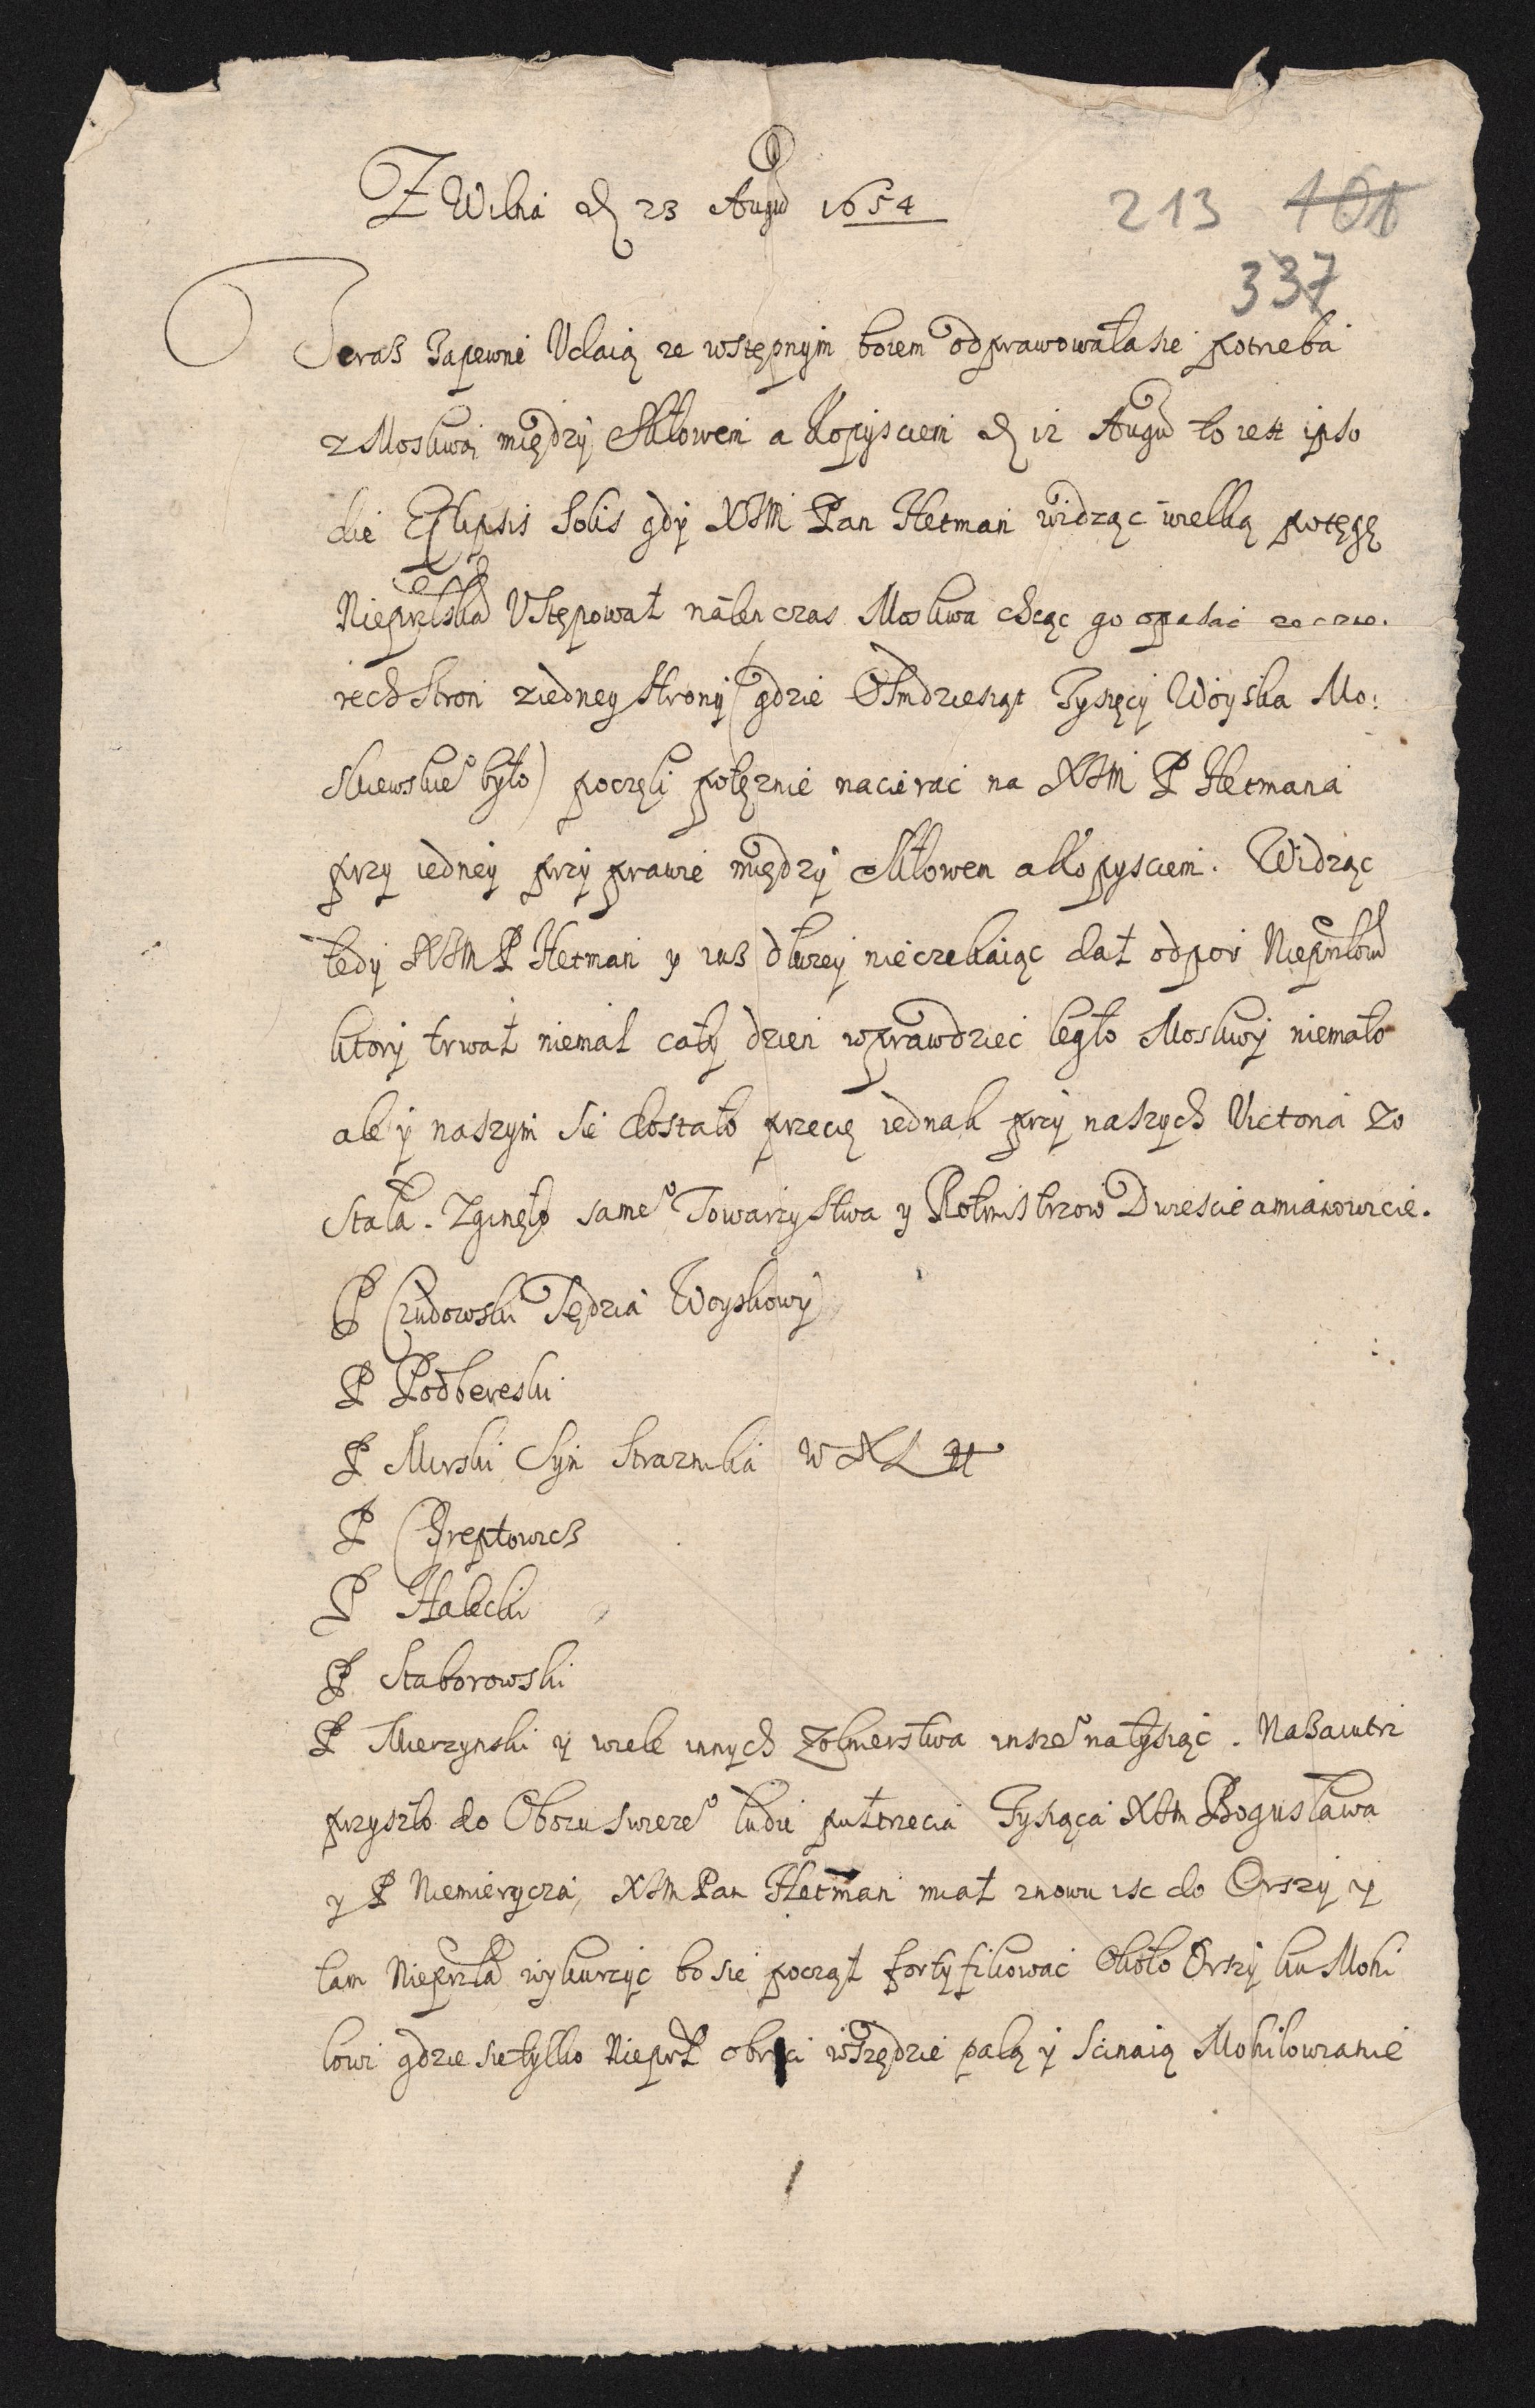 Z Wilna d 23 Augu 1654
213 101
337
Teraß Zapewne Udaią ze wstępnym boiem odprawowała sie potrzeba
z Moskwą między Szkłowem a Kopysciem d 12 Augu to iest ipso
die Eclipsis Solis gdy XJM Pan Hetman widząc wielką potęgę
Nieprzlską Ustępował naten czas Moskwa chcąc go opasać ze czte.
rech stron z iedney strony (gdzie Osmdziesiąt Tysięcy Woyska Mo:
skiewskie° było) poczęli potęznie nacierac na XJM P Hetmana
przy iedney przyprawie między Szkłowem a Kopysciem. Widząc
tedy XJM P Hetman y iuß dłuzey nieczekaiąc dał odpor Nieprzlowi
ktory trwał niemal cały dzien wprawdziec legło Moskwy niemało
ale y naszym sie dostało przecię iednak przy naszych Victoria zo
stała. Zginęło same° Towarzystwa y Rotmistrzow Dwiescie a mianowicie.
P Czudowski Sędzia Woyskowy
P Podbereski
P Mirski Syn Straznika W X L tt
P Chreptowicß
P Halecki
P Staborowski
P Mierzynski y wiele innych Zołnierstwa insze° na tysiąc. Naßaiutrz
przyszło do Obozu swieze° ludu pułtrzecia Tysiąca XJM Bogusława
y P Niemierycza, XJM Pan Hetman miał znowu isc do Orszy y
tam Nieprzla wykurzyc bo sie począł fortyfikowac Około Orszy ku Mohi
lowi gdzie sie tylko Nieprzl obroci wszędzie palą y scinaią Mohilowianie